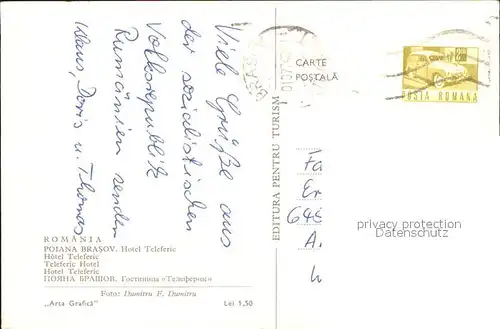 Viele Grüße aus
der sozialistischen
Volksrepublik
Rumänien senden
Klaus, Doris u. Thomas
ROMÂNIA
POIANA BRAȘOV. Hotel Teleferic
Hôtel Teleferic
Teleferic Hotel
Hotel Teleferic
ПОЯНА БРАШОВ. Гостиница «Телеферик»
Foto: Dumitru F. Dumitru
„Arta Grafică”
Lei 1,50
EDITURA PENTRU TURISM
CARTE
POȘTALĂ
POSTA ROMANA
Fa
Er
645
A.
privacy protection
Datenschutz